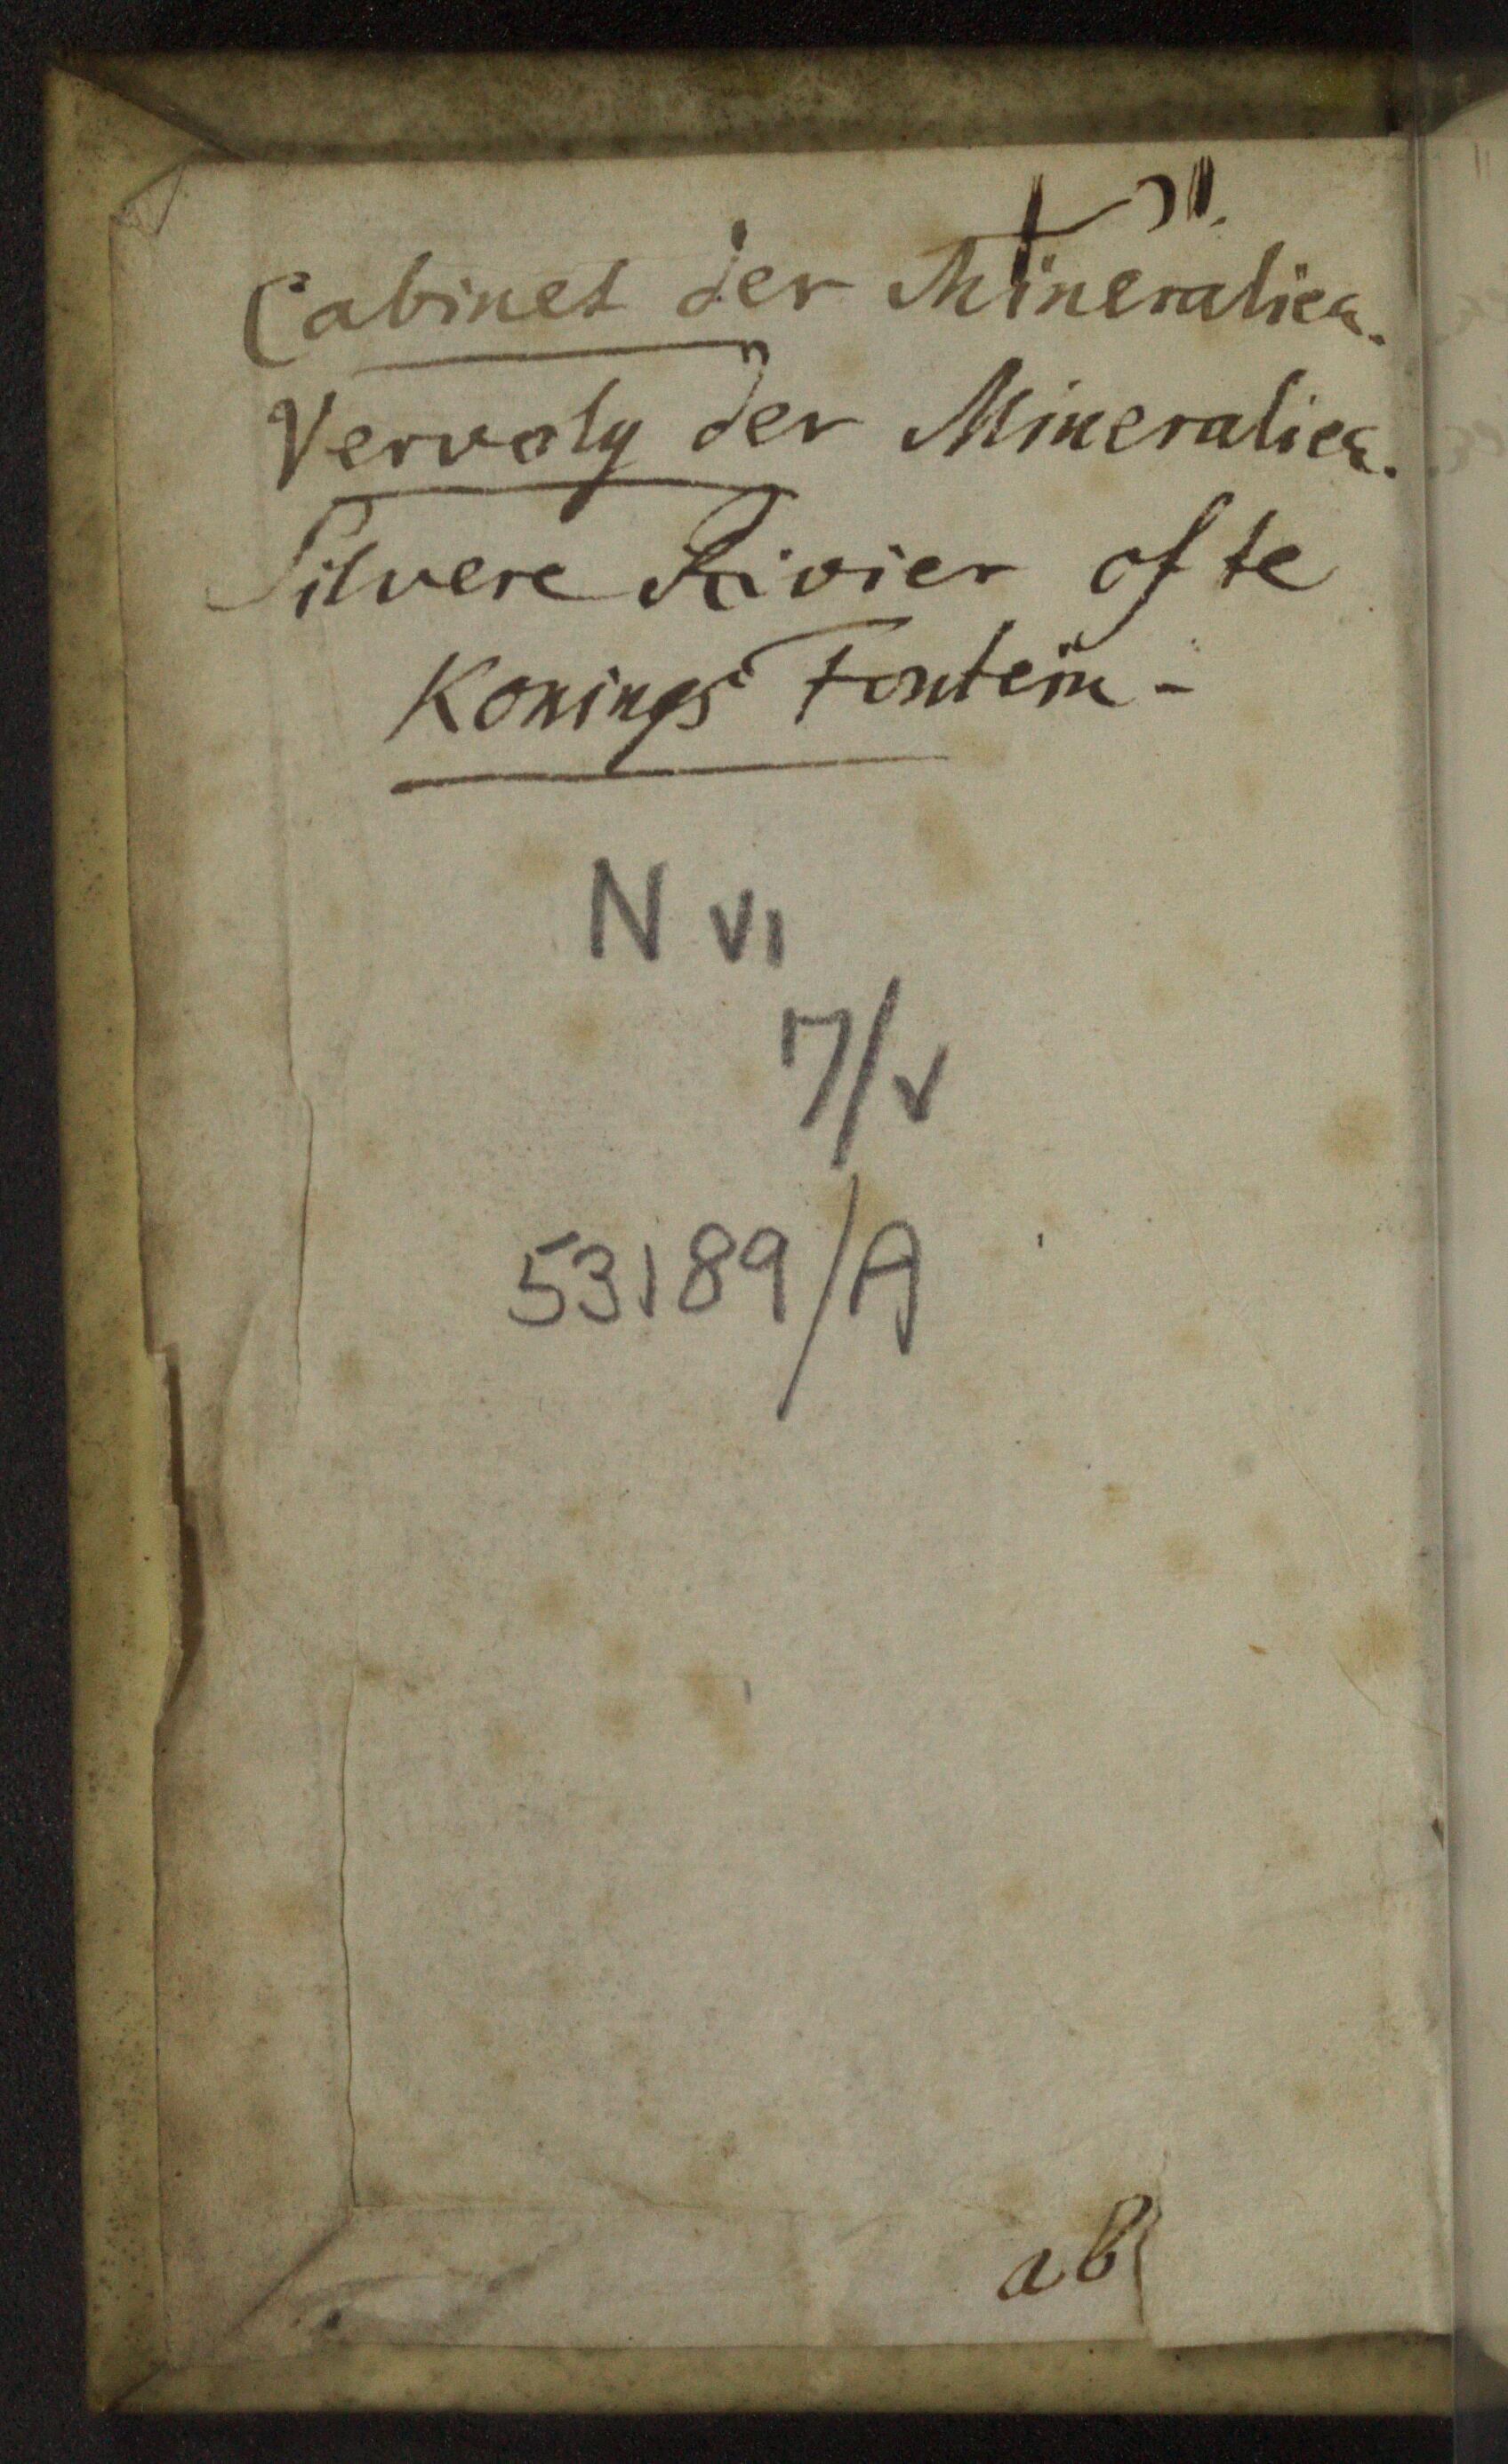 Cabinet der Mineralien.
Vervolg der Mineralien.
Silvere Rivier ofte
Konings Fontein -
N VI
7/v
53189/A
ab